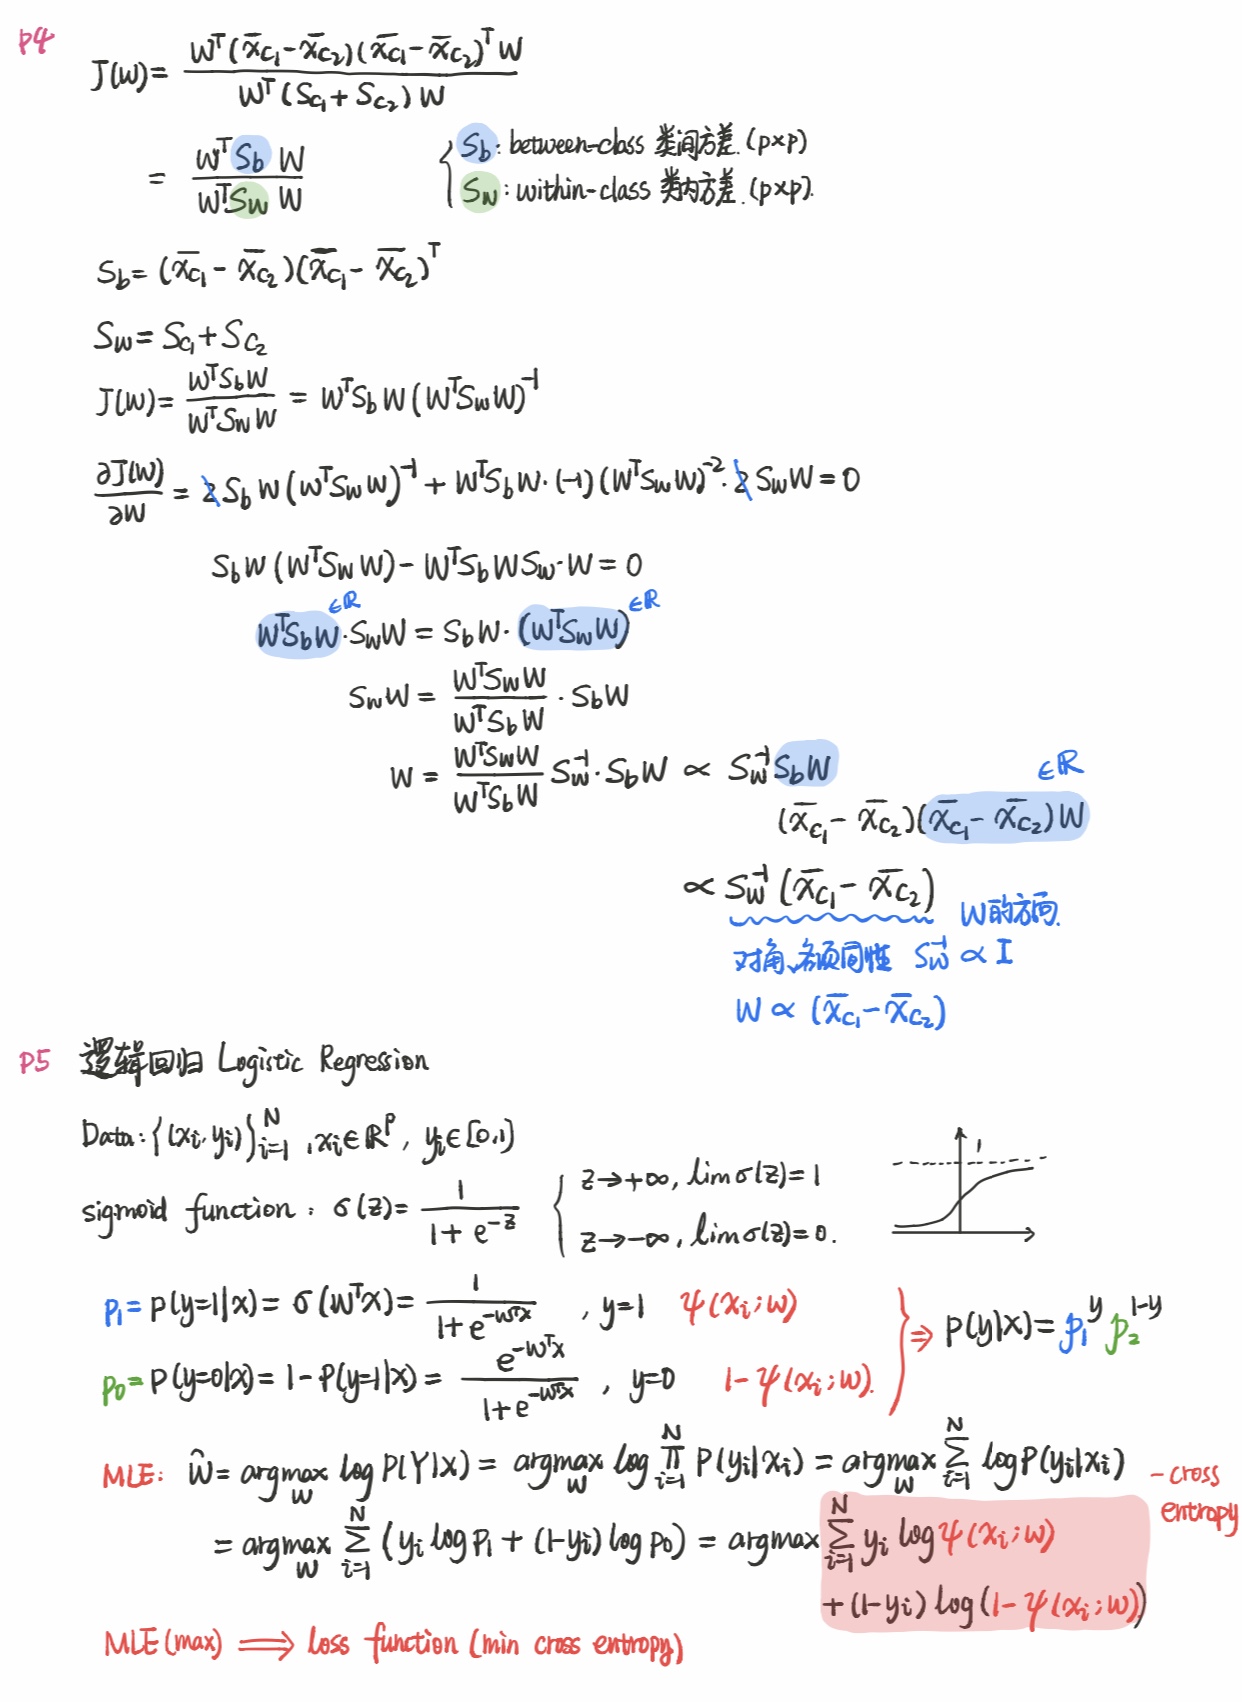 P4
J(w) = W^T(x̄_C1 - x̄_C2)(x̄_C1 - x̄_C2)^T W / W^T(S_C1 + S_C2)W
= W^T S_b W / W^T S_w W { S_b: between-class 类间方差. (p×p)
S_w: within-class 类内方差. (p×p).
S_b = (x̄_C1 - x̄_C2)(x̄_C1 - x̄_C2)^T
S_w = S_C1 + S_C2
J(w) = W^T S_b W / W^T S_w W = W^T S_b W (W^T S_w W)^-1
∂J(w)/∂W = 2 S_b W (W^T S_w W)^-1 + W^T S_b W · (-1)(W^T S_w W)^-2 · 2 S_w W = 0
S_b W (W^T S_w W) - W^T S_b W S_w · W = 0
W^T S_b W ∈ℝ · S_w W = S_b W · (W^T S_w W) ∈ℝ
S_w W = W^T S_w W / W^T S_b W · S_b W
W = W^T S_w W / W^T S_b W S_w^-1 · S_b W ∝ S_w^-1 S_b W
∈ℝ
(x̄_C1 - x̄_C2)(x̄_C1 - x̄_C2)W
∝ S_w^-1 (x̄_C1 - x̄_C2) W的方向.
对角、各项同性 S_w^-1 ∝ I
W ∝ (x̄_C1 - x̄_C2)
P5 逻辑回归 Logistic Regression
Data: {(x_i, y_i)}_{i=1}^N, x_i ∈ ℝ^p, y_i ∈ {0,1}
sigmoid function: σ(z) = 1 / 1 + e^-z { z→+∞, lim σ(z) = 1
z→-∞, lim σ(z) = 0.
1
p_1 = p(y=1|x) = σ(W^T x) = 1 / 1 + e^{-W^T x}, y=1 ψ(x_i; w)
} ⇒ p(y|x) = p_1^y p_2^{1-y}
p_0 = p(y=0|x) = 1 - P(y=1|x) = e^{-W^T x} / 1 + e^{-W^T x}, y=0 1 - ψ(x_i; w).
MLE: ŵ = argmax_W log P(Y|X) = argmax_W log ∏_{i=1}^N P(y_i|x_i) = argmax_W ∑_{i=1}^N log P(y_i|x_i)
- cross
entropy
= argmax_W ∑_{i=1}^N (y_i log p_1 + (1-y_i) log p_0) = argmax ∑_{i=1}^N y_i log ψ(x_i; w)
+ (1-y_i) log(1 - ψ(x_i; w))
MLE (max) ⟹ loss function (min cross entropy)